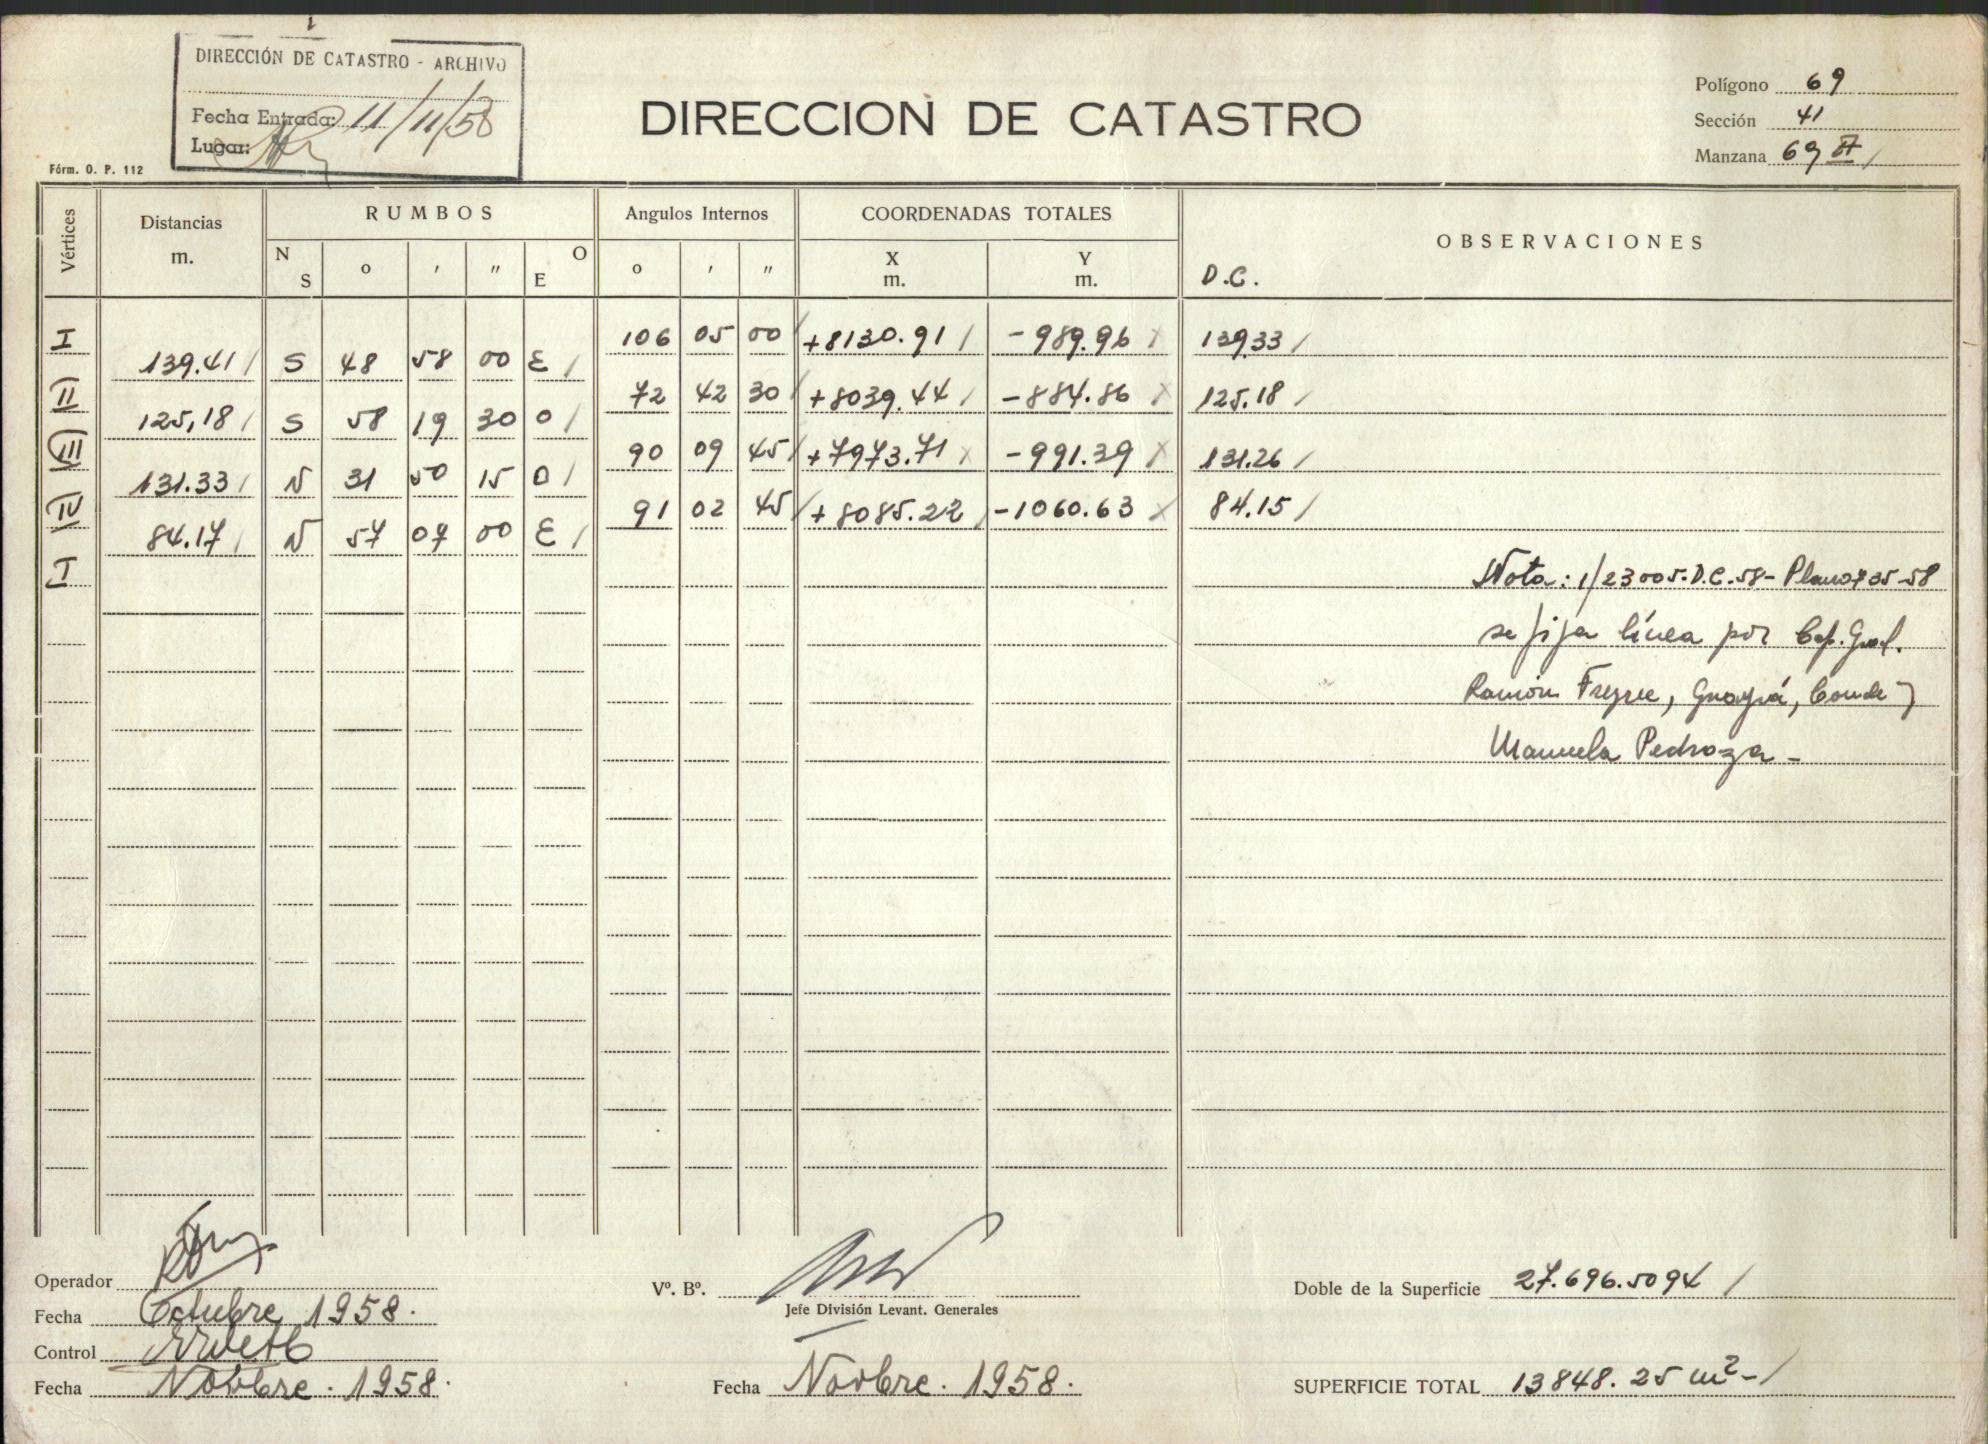 DIRECCIÓN DE CATASTRO - ARCHIVO
Fecha Entrada: 11/11/58
Lugar:
Fórm. O. P. 112
DIRECCION DE CATASTRO
Polígono 69
Sección 41
Manzana 69
Vértices Distancias m. RUMBOS N S o ' " E O Angulos Internos o ' " COORDENADAS TOTALES X m. Y m. OBSERVACIONES
D.C.
I 106 05 00 +8130.91 -989.96 139.33
139.41 S 48 58 00 E
II 72 42 30 +8039.44 -884.86 125.18
125,18 S 58 19 30 O
III 90 09 45 +7973.71 -991.39 131.26
131.33 N 31 50 15 O
IV 91 02 45 +8085.22 -1060.63 84.15
84.17 N 57 07 00 E
I
Nota: 1/23005.D.C.58- Plano 735-58
se fija línea por Cap. Gral.
Ramón Freyre, Guayrá, Conde y
Manuela Pedraza -
Operador
Fecha Octubre 1958.
Control
Fecha Novbre. 1958.
Vº. Bº.
Jefe División Levant. Generales
Fecha Novbre. 1958.
Doble de la Superficie 27.696.5094
SUPERFICIE TOTAL 13848.25 m² -